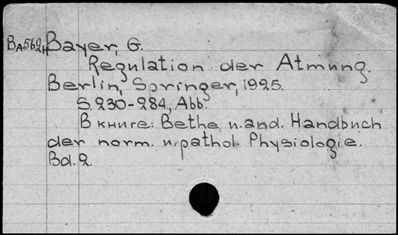 Ba562h Bayer, G.
Regulation der Atmung.
Berlin, Springer, 1925.
S. 230-284, Abb
В книге: Bethe, u. and. Handbuch
der norm. u. pathol. Physiologie.
Bd. 2.